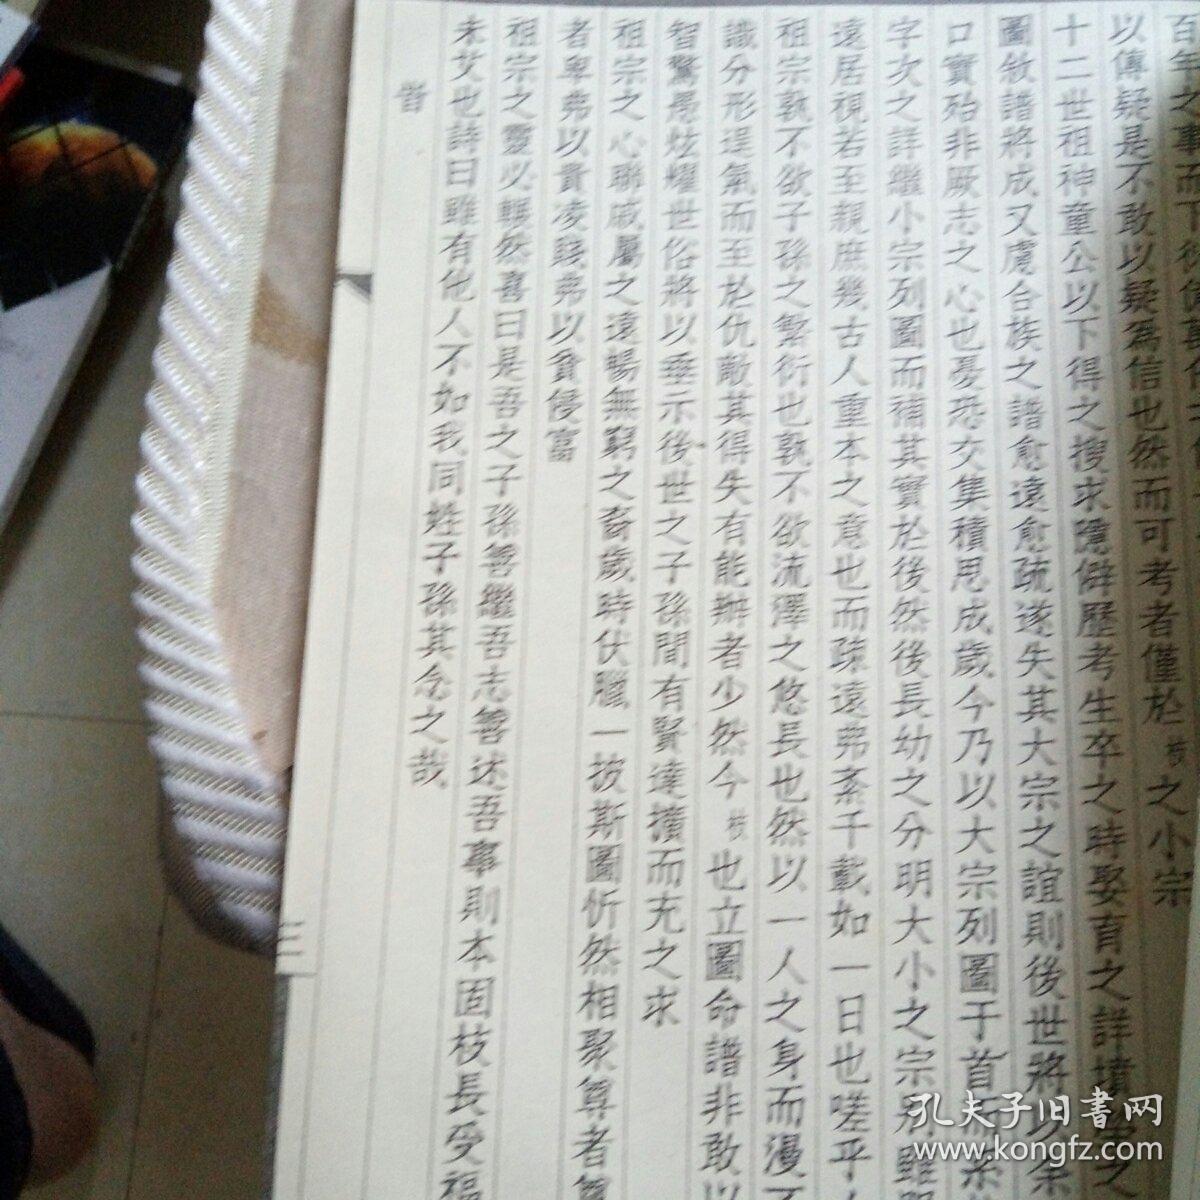 百年之事而下
以傳疑是不敢以疑為信也然而可考者僅於枝之小宗
十二世祖神童公以下得之搜求隱僻歷考生卒之時娶育之詳墳
圖敘譜將成又慮合族之譜愈遠愈疏遂失其大宗之誼則後世將以余
口實殆非厥志之心也憂恐交集積思成歲今乃以大宗列圖于首而系
字次之詳繼小宗列圖而補其實於後然後長幼之分明大小之宗別雖
遠居視若至親庶幾古人重本之意也而疎遠弗紊千載如一日也嗟乎人
祖宗孰不欲子孫之繁衍也孰不欲流澤之悠長也然以一人之身而漫不
識分形逞氣而至於仇敵其得失有能辦者少然今枝也立圖命譜非敢以
智驚愚炫燿世俗將以垂示後世之子孫間有賢達擴而充之求
祖宗之心聯戚屬之遠暢無窮之裔歲時伏臘一披斯圖忻然相聚尊者尊
者卑弗以貴凌賤弗以貧侵富
祖宗之靈必囅然喜曰是吾之子孫善繼吾志善述吾事則本固枝長受福
未艾也詩曰雖有他人不如我同姓子孫其念之哉
旹
三
孔夫子旧書网
www.kongfz.com